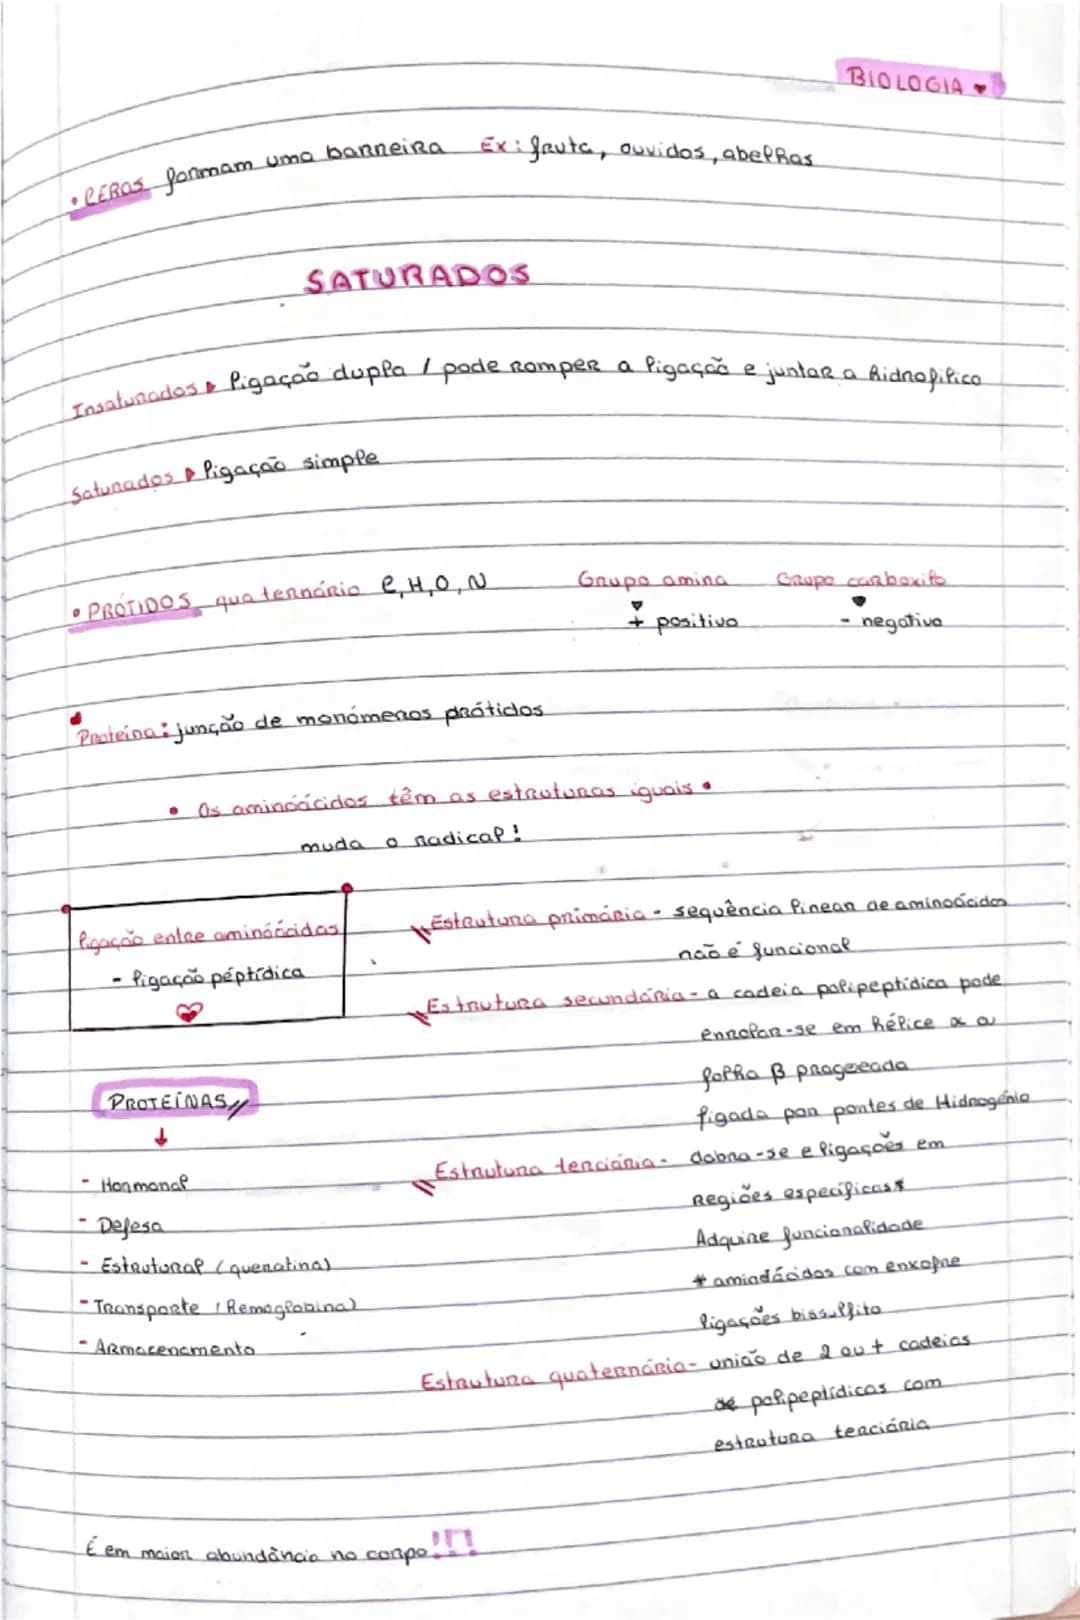 BIOLOGIA
• CERAS formam uma barreira Ex: fruta, ouvidos, abelhas
SATURADOS
Insaturados ligação dupla / pode romper a ligação e juntar a hidrofílico
Saturados ligação simple
• PRÓTIDOS quaternário C, H, O, N Grupo amina Grupo carboxilo
+ positivo - negativo
Proteína: junção de monómeros prótidos
• Os aminoácidos têm as estruturas iguais •
muda o radical!
ligação entre aminoácidos
- ligação péptídica
Estrutura primária - sequência linear de aminoácidos
não é funcional
Estrutura secundária - a cadeia polipeptídica pode
enrolar-se em hélice α ou
folha β pragueada
ligada por pontes de Hidrogénio
PROTEÍNAS//
↓
- Hormonal
- Defesa
- Estrutural (queratina)
- Transporte (Hemoglobina)
- Armazenamento
Estrutura terciária - dobra-se e ligações em
Regiões específicas*
Adquire funcionalidade
* aminoácidos com enxofre
ligações bissulfito
Estrutura quaternária - união de 2 ou + cadeias
polipeptídicas com
estrutura terciária
É em maior abundância no corpo!!!